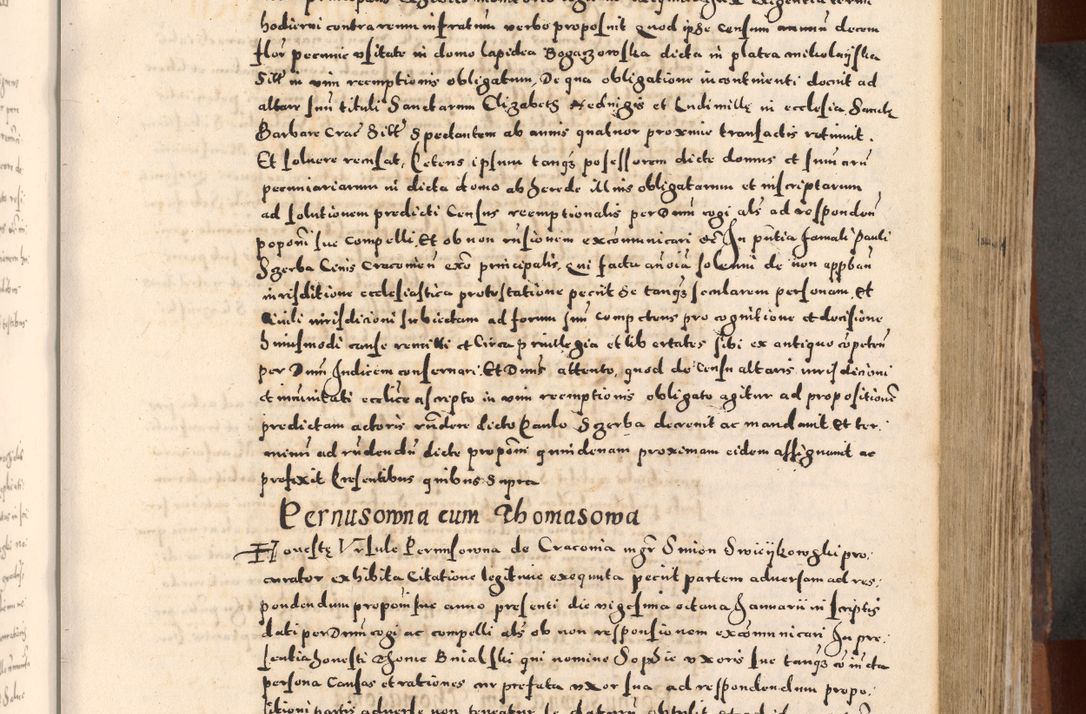 hodierni contra reum infratum verbo proposuit Quod ipse Censum annuum decem
flor pecunie usitate in domo lapidea Bogaczowska dicta in platea mikolayska
Sitt in vim reemptionis obligatum, De qua obligatione incontinenti docuit ad
altare sui tituli Sanctarum Elizabeth Hedvigis et Ludimille in ecclesia Sancte
Barbare Crac Sitt Spectantem ab annis quatuor proxime transactis retinuit.
Et solvere recusat, Petens ipsum tanqz possessorem dicte domus et summarum
pecuniariarum in dicta domo ab herede illius obligatarum et inscriptarum
ad solutionem predicti Census reemptionalis per Dnum cogi als ad respondendum
proponi sue compelli, Et ob non excommunicari In pntia famati Pauli
Szerba Civis Cracovien principalis, qui facta solenni de non
iurisditione ecclesiastica protestatione peciit se tanqz secularem personam, Et
Civili iurisdicioni subiectam ad forum suum competens pro cognitione et decisione
huiusmodi cause remitti et Circa privilegia et libertates sibi ex antiquo
per Dnum Judicem conservari, Et Dnus attento, quod de Censu altaris iurisdicioni
et immunitati ecclice ascripto in vim reemptionis obligato agitur ad propositionem
predictam actoris rndere dicto Paulo Szerba decrevit ac mandavit Et ter.
minum ad rndendum dicte proponi quindenam proximam eidem assignavit ac
prefixit Presentibus quibus Supra
Pernusowna cum Thomasowa
Honeste Ursule Pernusowna de Cracovia mgr Simon pro.
curator exhibita Citatione legitime exequuta peciit partem adversam ad res.
pondendum proponi sue anno presenti die vigesima octava Januarii in scriptis
dati per Dnum cogi ac compelli als ob non responsionem excommunicari In pre.
sentia honesti Thome qui nomine Sophie uxoris sue tanqz coniuncta
persona Causas et rationes cur prefata uxor sua ad respondendum propo.
sitioni partis adverse non teneatur